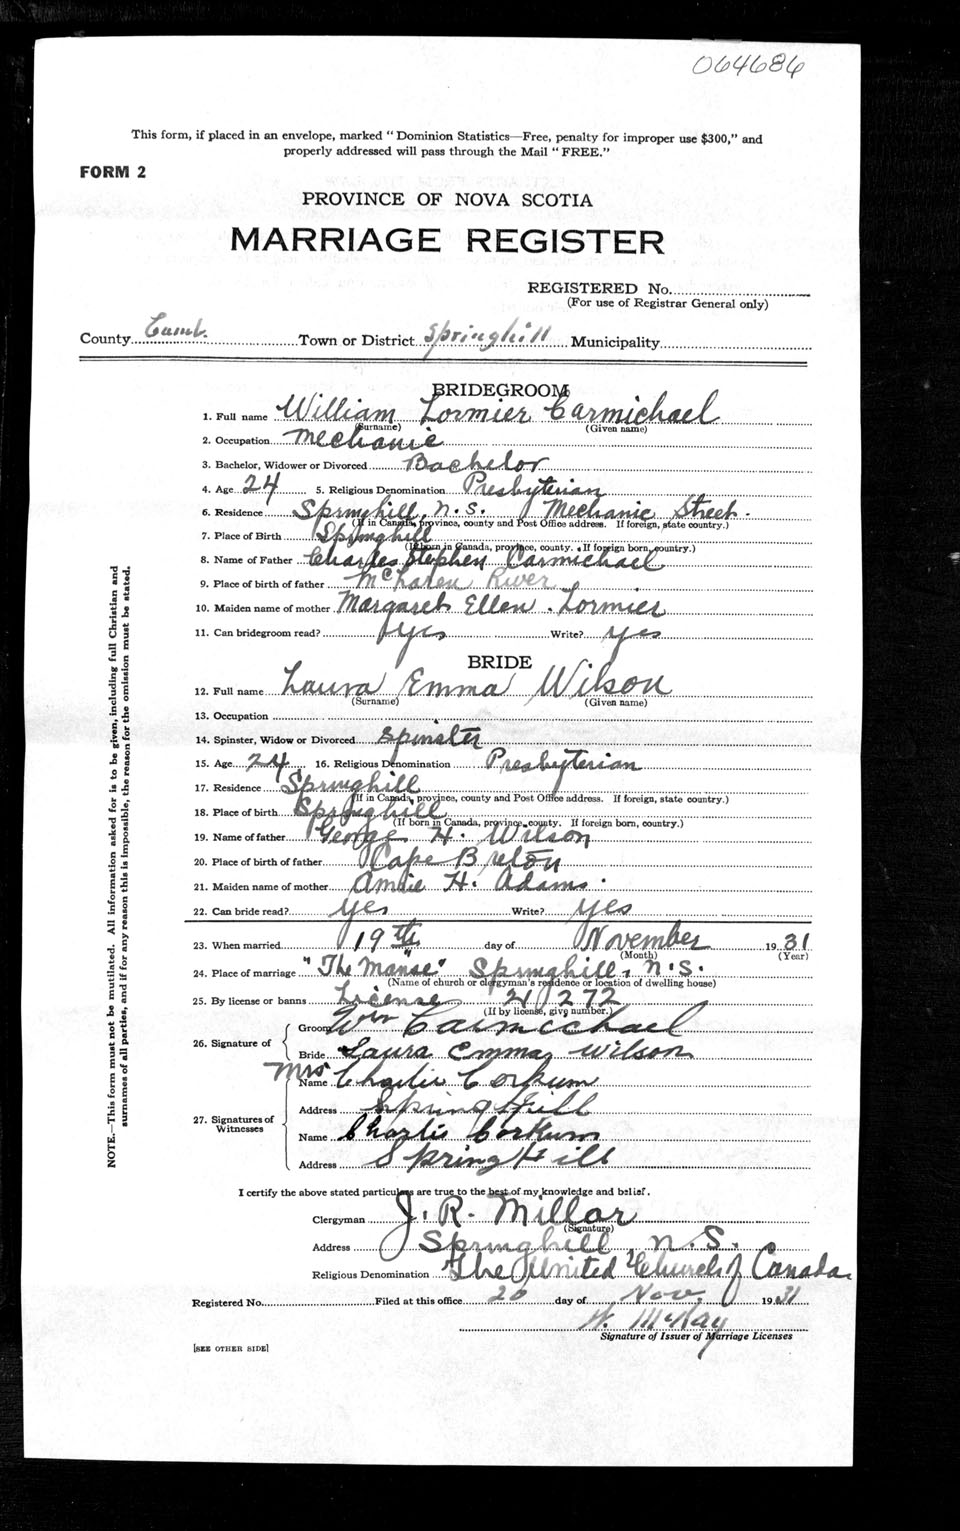 064686
This form, if placed in an envelope, marked "Dominion Statistics—Free, penalty for improper use $300," and
properly addressed will pass through the Mail "FREE."
FORM 2
PROVINCE OF NOVA SCOTIA
MARRIAGE REGISTER
REGISTERED No.
(For use of Registrar General only)
County Cumb. Town or District Springhill Municipality
BRIDEGROOM
1. Full name William Lormier Carmichael
(Surname) (Given name)
2. Occupation Mechanic
3. Bachelor, Widower or Divorced Bachelor
4. Age 24 5. Religious Denomination Presbyterian
6. Residence Springhill, N.S. Mechanic Street.
(If in Canada, province, county and Post Office address. If foreign, state country.)
7. Place of Birth Springhill
(If born in Canada, province, county. If foreign born, country.)
8. Name of Father Charles Stephen Carmichael
9. Place of birth of father River
10. Maiden name of mother Margaret Ellen Lormier
11. Can bridegroom read? yes Write? yes
BRIDE
12. Full name Laura Emma Wilson
(Surname) (Given name)
13. Occupation
14. Spinster, Widow or Divorced Spinster
15. Age 24 16. Religious Denomination Presbyterian
17. Residence Springhill
(If in Canada, province, county and Post Office address. If foreign, state country.)
18. Place of birth Springhill
(If born in Canada, province, county. If foreign born, country.)
19. Name of father George H. Wilson
20. Place of birth of father Cape Breton
21. Maiden name of mother H. Adams.
22. Can bride read? yes Write? yes
23. When married 19th day of November 1931
(Month) (Year)
24. Place of marriage "The Manse" Springhill, N.S.
(Name of church or clergyman's residence or location of dwelling house)
25. By license or banns License 21272
(If by license, give number.)
26. Signature of
Groom Wm Carmichael
Bride Laura Emma Wilson
27. Signatures of Witnesses
Name Mrs Charlie Corkum
Address SpringHill
Name Charlie Corkum
Address SpringHill
I certify the above stated particulars are true to the best of my knowledge and belief.
Clergyman J. R. Millar
(Signature)
Address Springhill N.S.
Religious Denomination The United Church of Canada
Registered No. Filed at this office 20 day of Nov. 1931
McKay
Signature of Issuer of Marriage Licenses
[SEE OTHER SIDE]
NOTE.—This form must not be mutilated. All information asked for is to be given, including full Christian and
surnames of all parties, and if for any reason this is impossible, the reason for the omission must be stated.